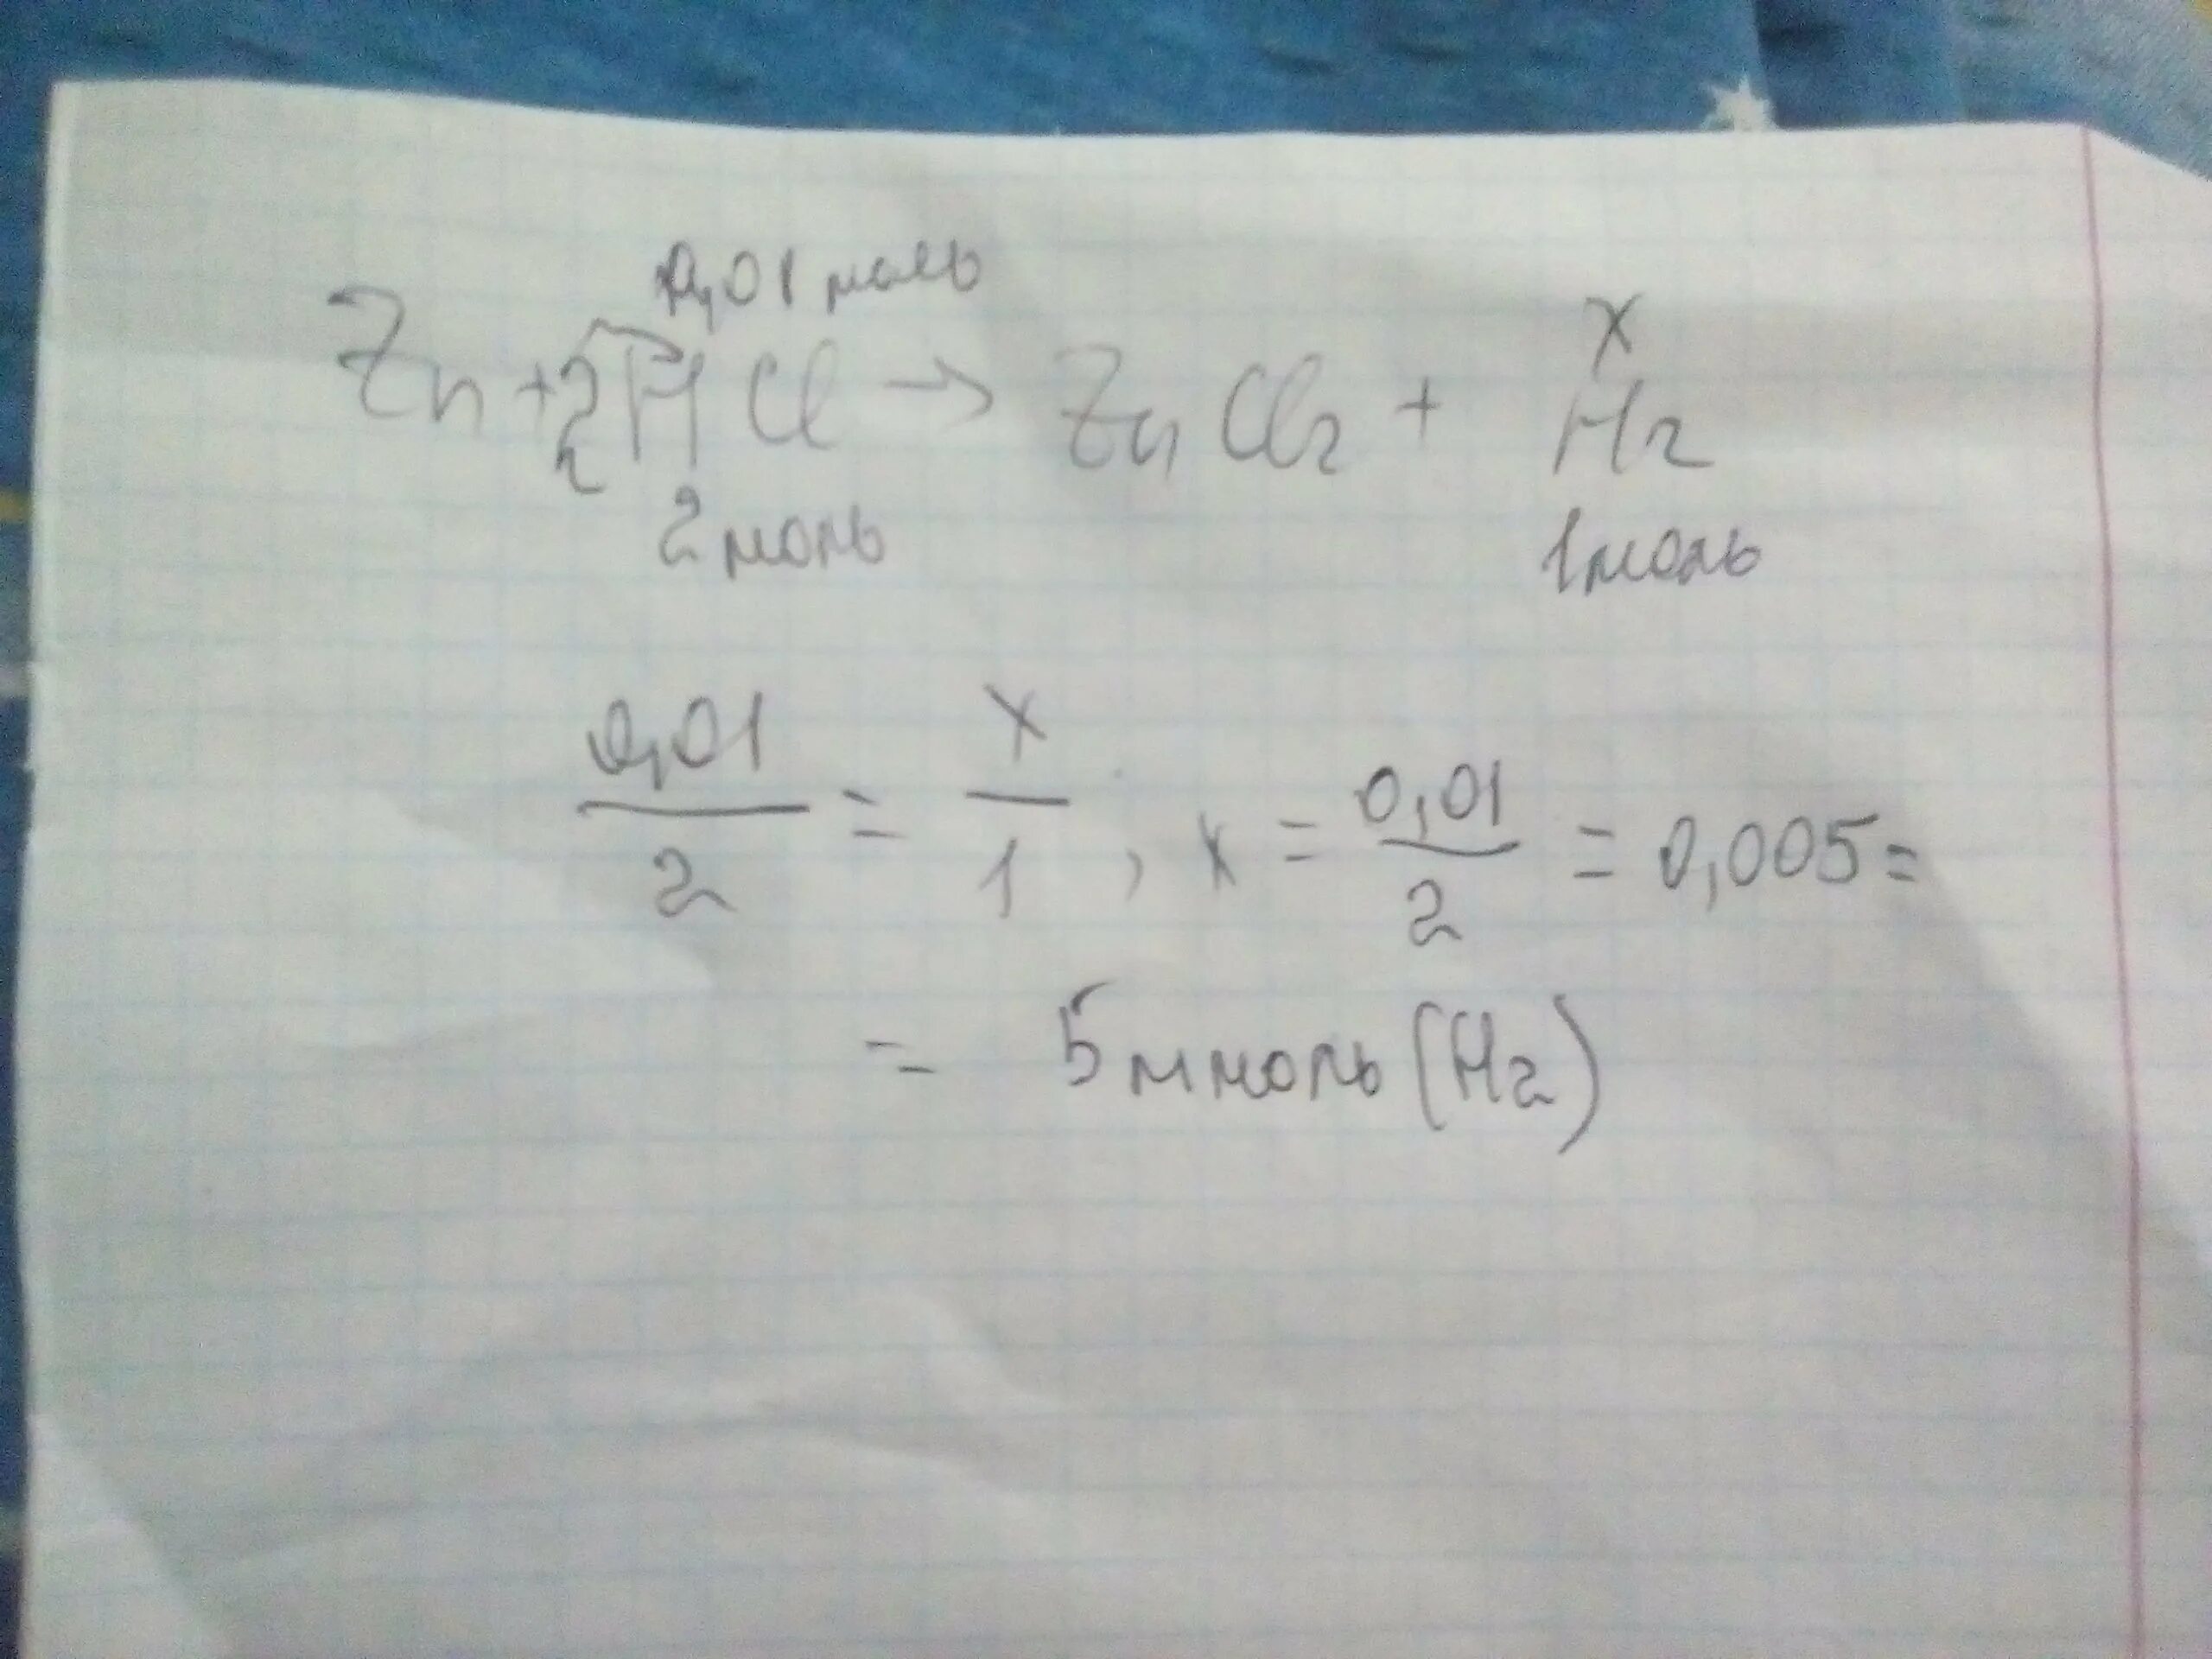 0,01 моль x
Zn + 2HCl → ZnCl₂ + H₂
2 моль 1 моль
0,01/2 = x/1, x = 0,01/2 = 0,005 =
= 5 ммоль (H₂)